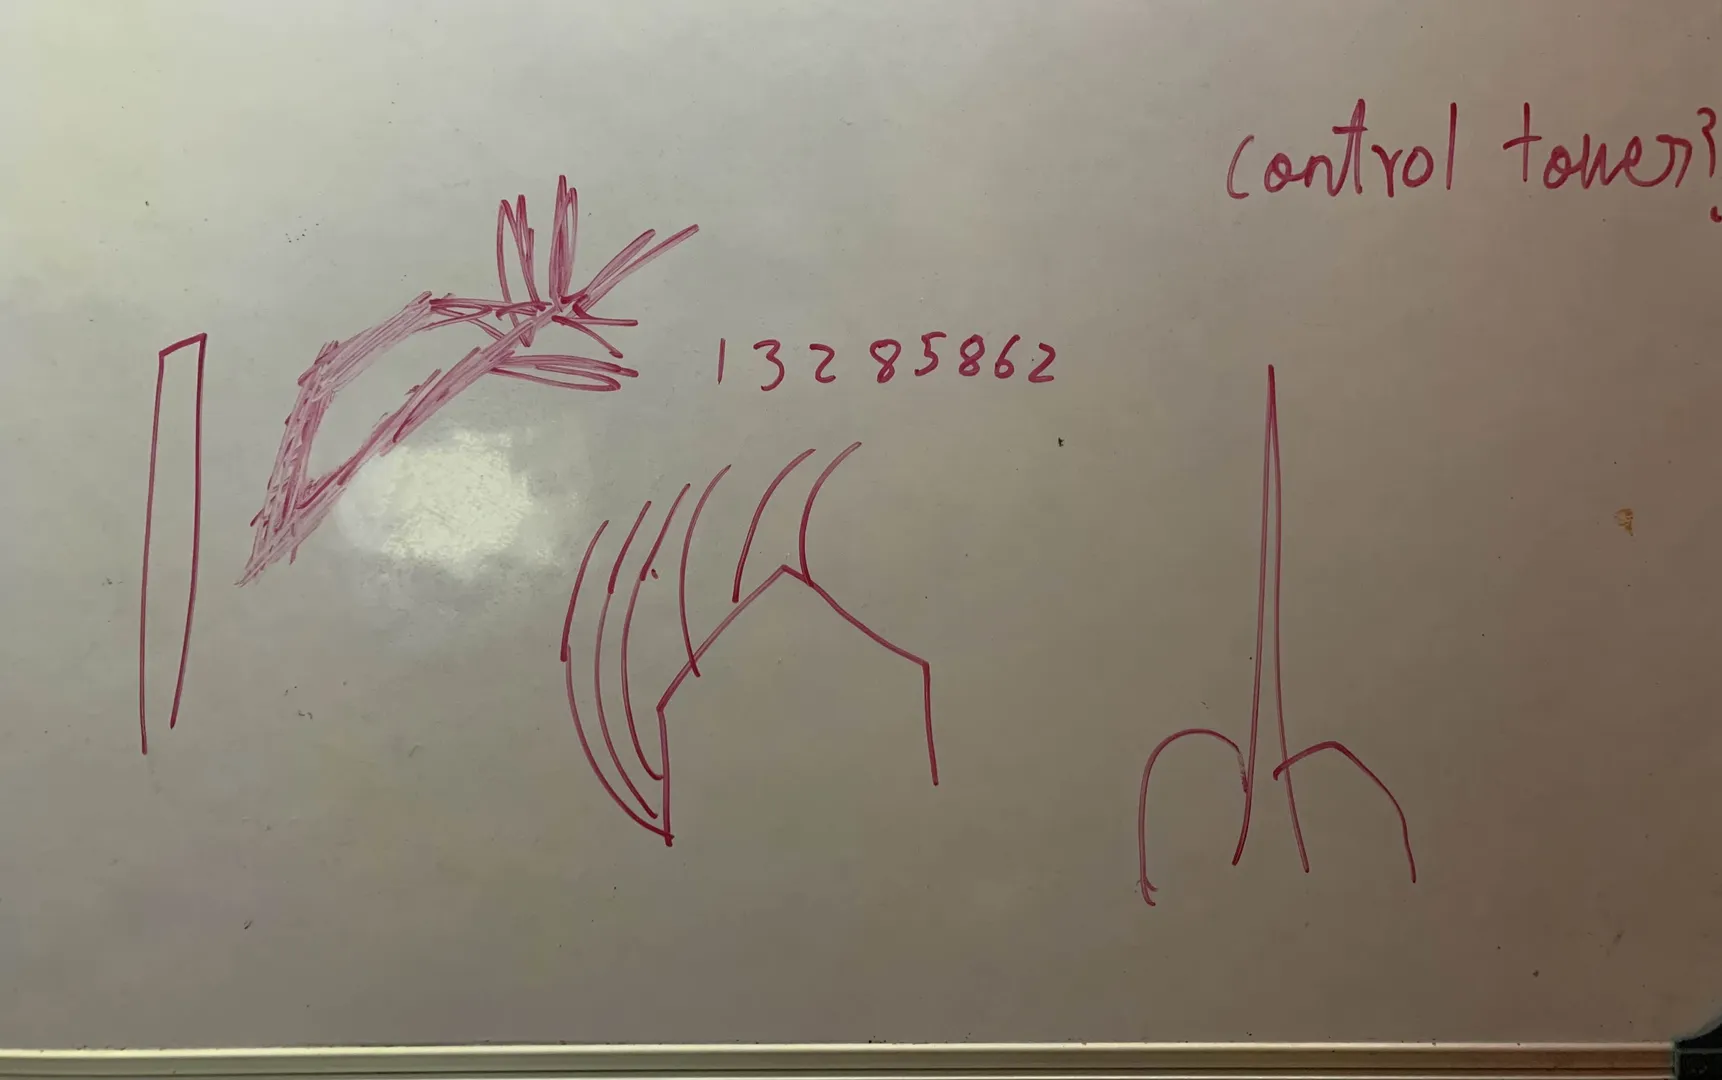 control tower?
13285862